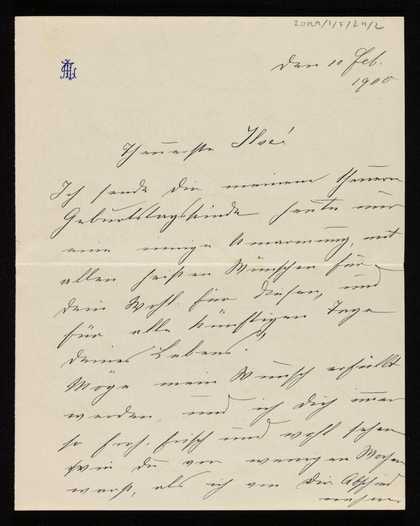 den 10 Feb.
1900
Theuerste Ilse!
Ich sende Dir meinem theuern
Geburtstagskinde heute nur
eine innige Umarmung, mit
allen heißen Wünschen für
dein Wohl, für diesen, und
für alle künftigen Tage
deines Lebens.
Möge mein Wunsch erfüllt
werden, und ich Dich immer
so froh, frisch und wohl sehen
wie du vor wenigen Wochen
warst, als ich von Dir Abschied
nahm.